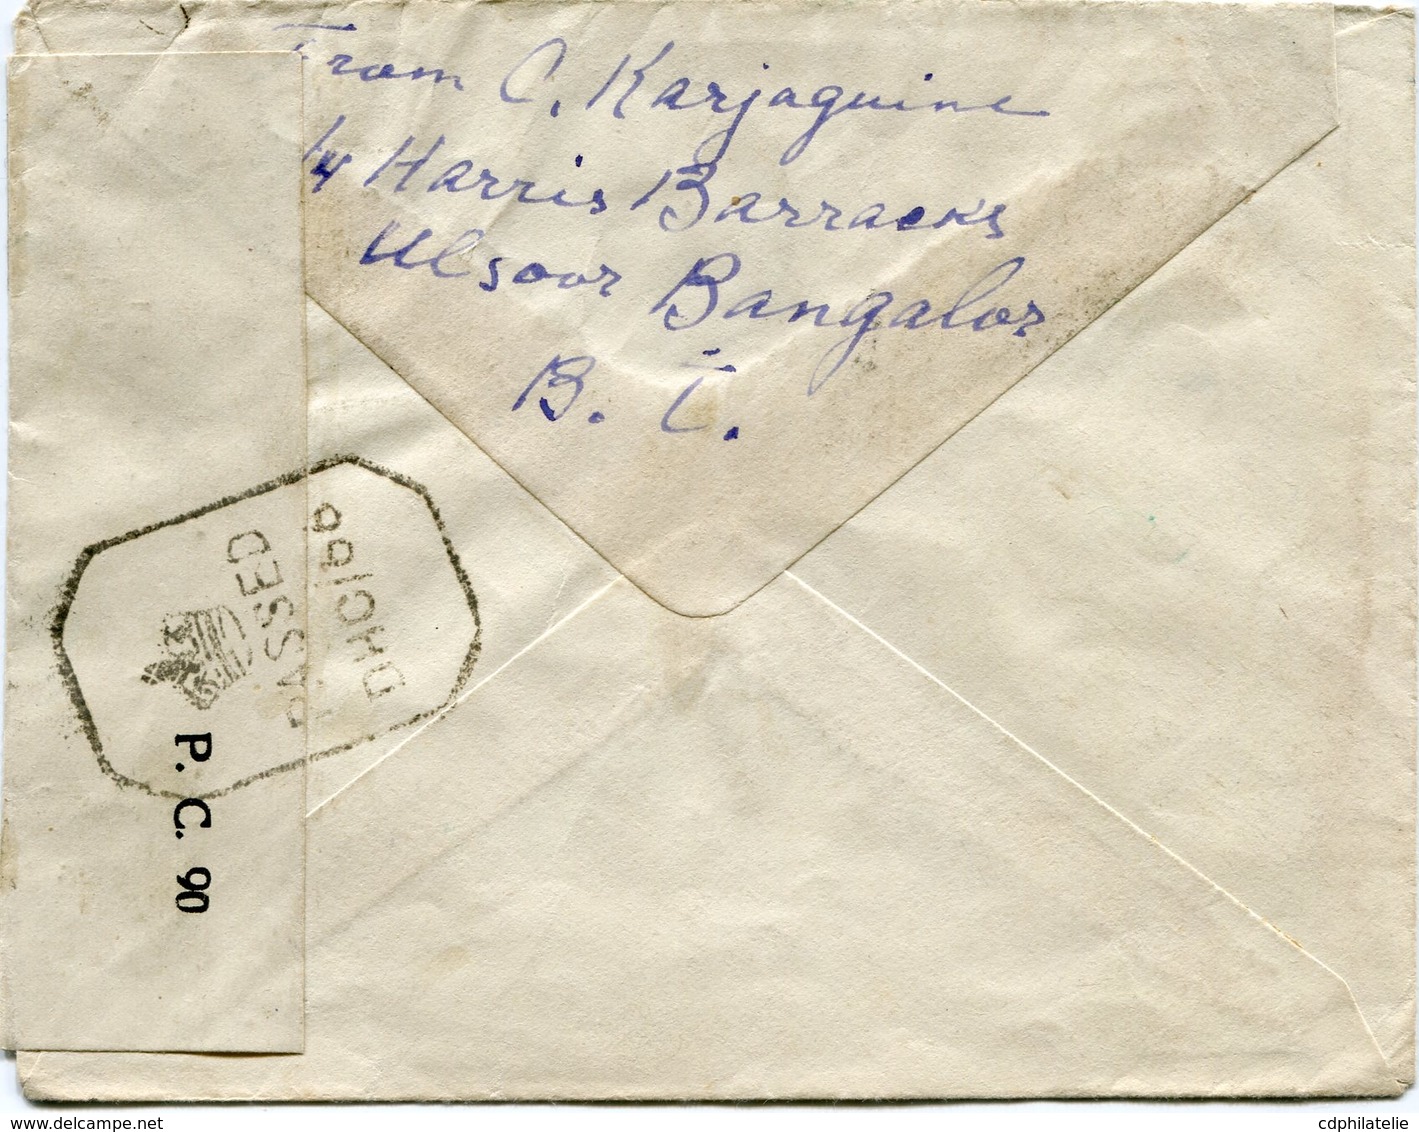 From C. Karjaguine
14 Harris Barracks
Ulsoor Bangalor
B. I.
PASSED
DHC/99
P. C. 90
www.delcampe.net
cdphilatelie